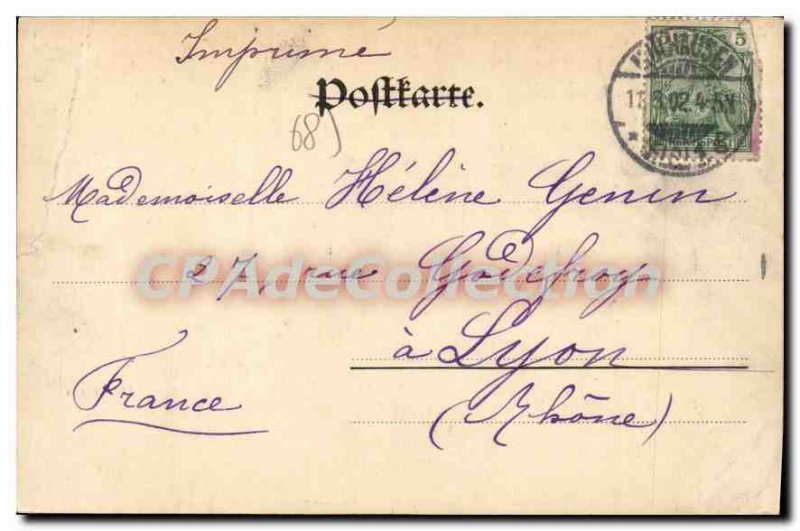 Imprimé
Postkarte.
5
MÜLHAUSEN
02.4-5N
68J
Mademoiselle Hélène Genin
27, rue Godefroy
CPAdeCollection
à Lyon
France
(Rhône)